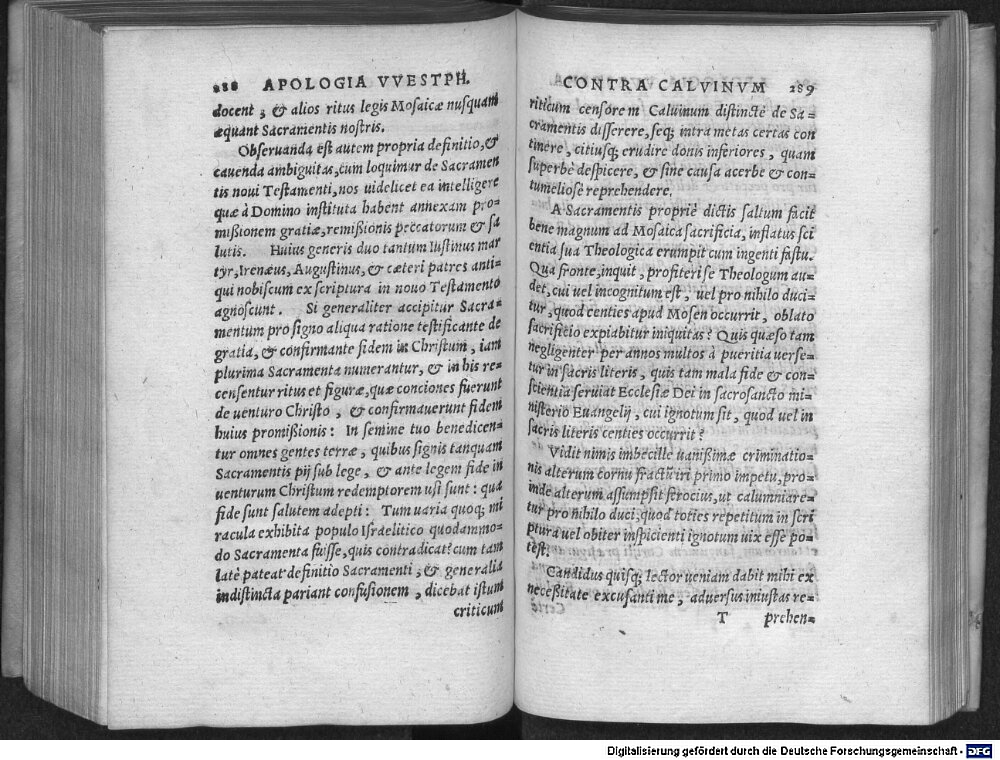 288 APOLOGIA VVESTPH.
docent, & alios ritus legis Mosaicæ nusquam
æquant Sacramentis nostris.
Obseruanda est autem propria definitio, &
cauenda ambiguitas, cum loquimur de Sacramen
tis noui Testamenti, nos uidelicet ea intelligere
quæ à Domino instituta habent annexam pro-
mißionem gratiæ, remißionis peccatorum & sa
lutis. Huius generis duo tantum Iustinus mar
tyr, Irenæus, Augustinus, & cæteri patres anti-
qui nobiscum ex scriptura in nouo Testamento
agnoscunt. Si generaliter accipitur Sacra-
mentum pro signo aliqua ratione testificante de
gratia, & confirmante fidem in Christum, iam
plurima Sacramenta numerantur, & in his re-
censentur ritus et figuræ, quæ conciones fuerunt
de uenturo Christo, & confirmauerunt fidem
huius promißionis: In semine tuo benedicen-
tur omnes gentes terræ, quibus signis tanquam
Sacramentis pij sub lege, & ante legem fide in
uenturum Christum redemptorem usi sunt: qua
fide sunt salutem adepti: Tum uaria quoq; mi
racula exhibita populo Israelitico quodammo-
do Sacramenta fuisse, quis contradicat? cum tam
latè pateat definitio Sacramenti, & generalia
indistincta pariant confusionem, dicebat istum
criticum
CONTRA CALVINVM 289
riticum censorem Caluinum distinctè de Sa-
cramentis disserere, seq; intra metas certas con
tinere, citiusq; erudire donis inferiores, quam
superbè despicere, & sine causa acerbe & con-
tumeliosè reprehendere.
A Sacramentis propriè dictis saltum facit
bene magnum ad Mosaica sacrificia, inflatus sci
entia sua Theologica erumpit cum ingenti fastu.
Qua fronte, inquit, profiteri se Theologum au-
det, cui uel incognitum est, uel pro nihilo duci-
tur, quod centies apud Mosen occurrit, oblato
sacrificio expiabitur iniquitas? Quis quæso tam
negligenter per annos multos à pueritia uerse-
tur in sacris literis, quis tam mala fide & con-
scientia seruiat Ecclesiæ Dei in sacrosancto mi-
nisterio Euangelij, cui ignotum sit, quod uel in
sacris literis centies occurrit?
Vidit nimis imbecille uanißimæ criminatio-
nis alterum cornu fractū iri primo impetu, pro-
inde alterum assumpsit ferocius, ut calumniare-
tur pro nihilo duci, quod toties repetitum in scri
ptura uel obiter inspicienti ignotum uix esse po-
test.
Candidus quisq; lector ueniam dabit mihi ex
neceßitate excusanti me, aduersus iniustas re-
T prehen-
Digitalisierung gefördert durch die Deutsche Forschungsgemeinschaft - DFG